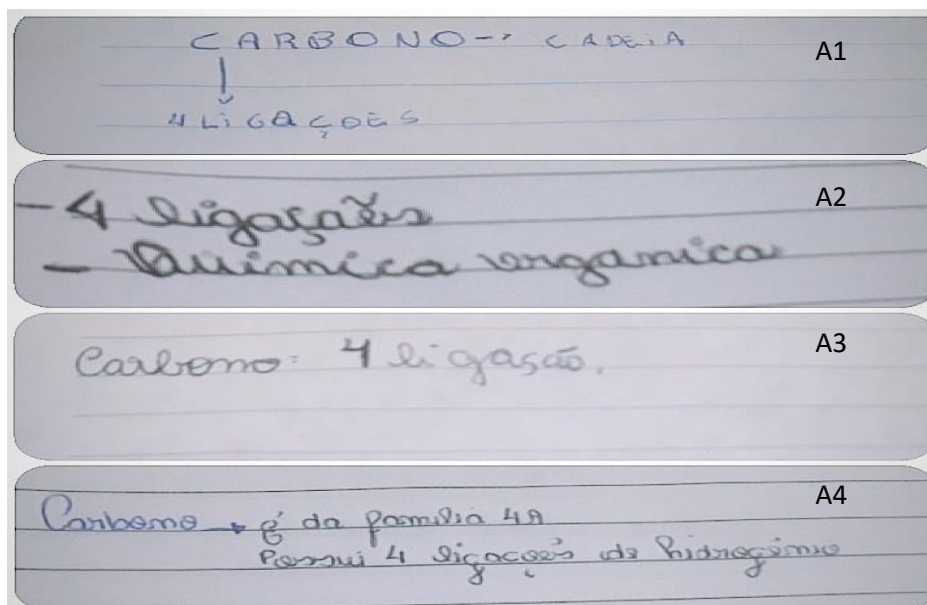 CARBONO → CADEIA
A1
4 LIGAÇÕES
A2
- 4 ligações
- Química orgânica
A3
Carbono: 4 ligasão.
A4
Carbono → é da família 4A
Possui 4 ligações de hidrogênio